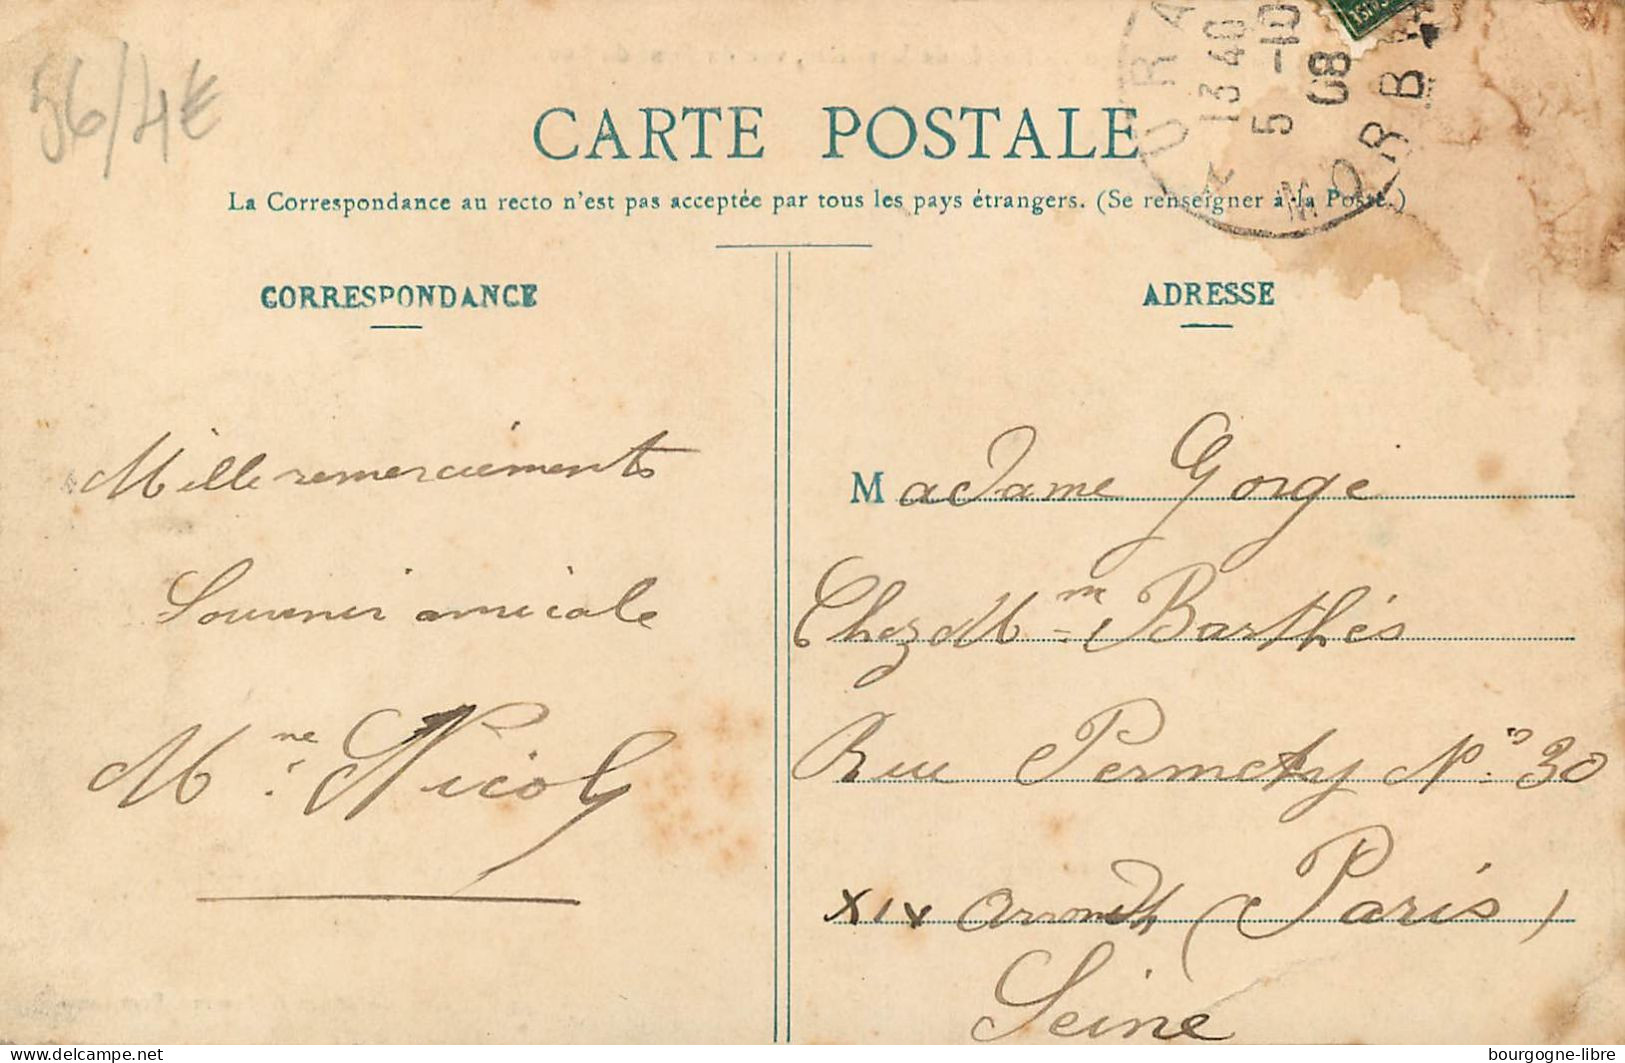 56/4€
CARTE POSTALE
La Correspondance au recto n'est pas acceptée par tous les pays étrangers. (Se renseigner à la Poste.)
CORRESPONDANCE
Mille remerciéments
Souvenir amicale
Mme Nicol
ADRESSE
Madame Gorge
Chez Mm Barthés
Rue Permety No 30
XIX arrondt (Paris)
Seine
URA
13 40
5 -10
08
MORB
delcampe.net
bourgogne-libre